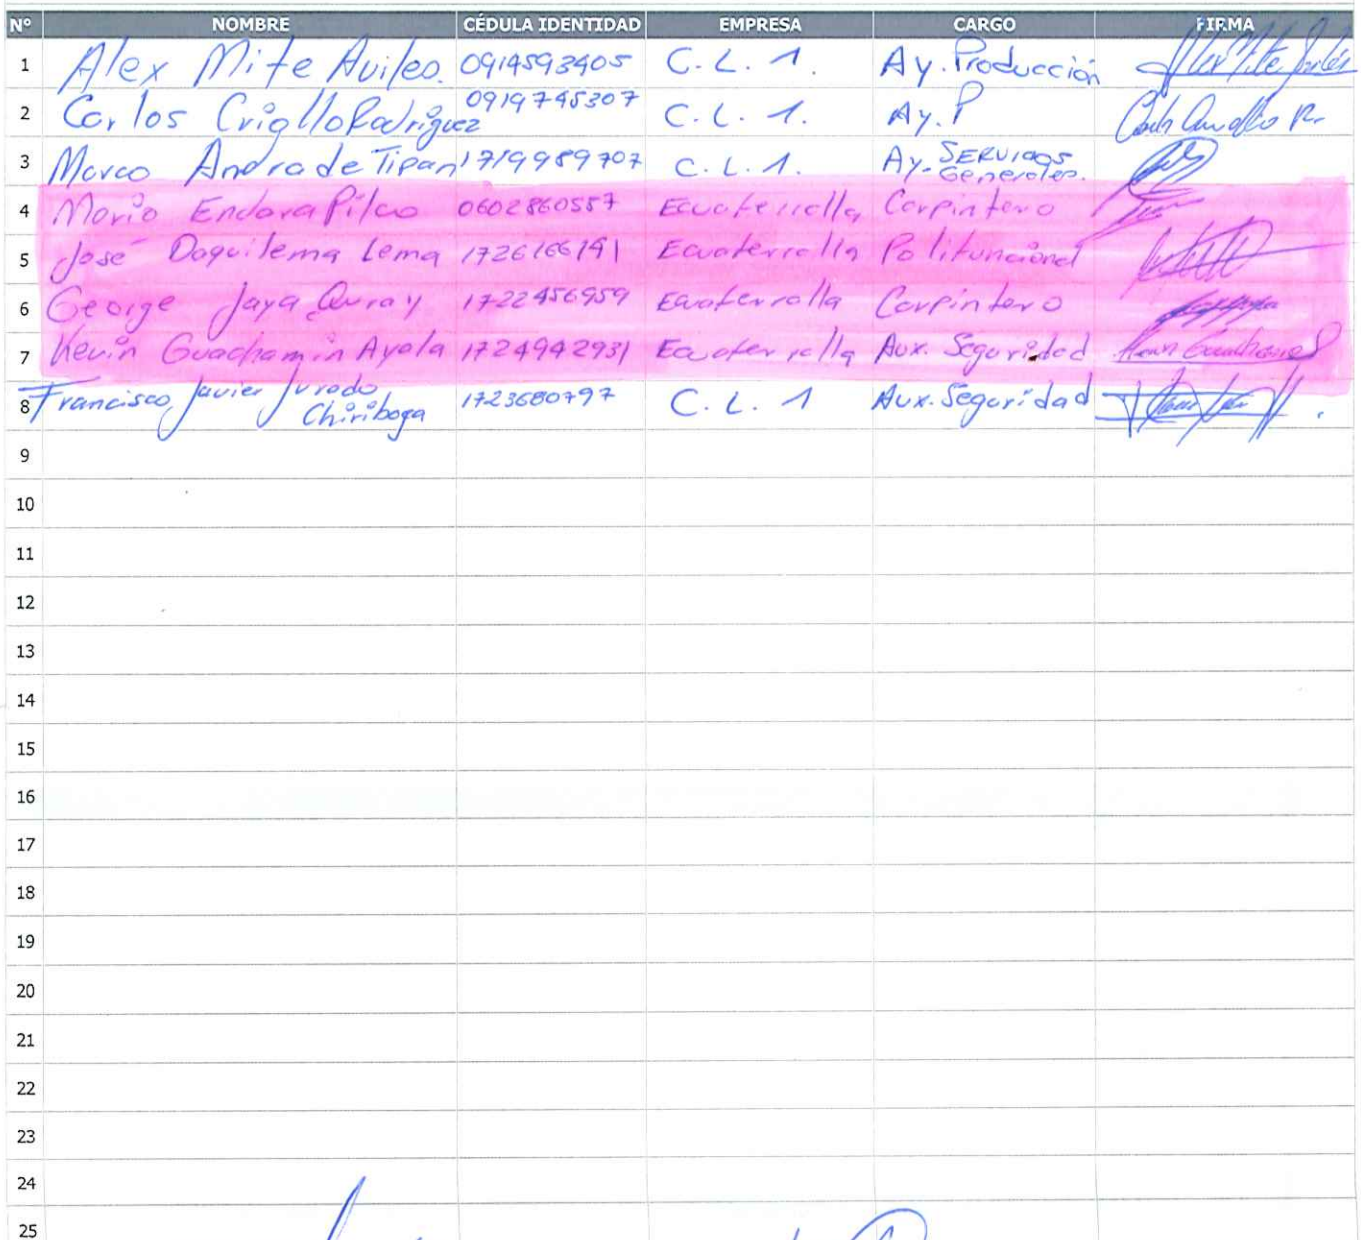 N° NOMBRE CÉDULA IDENTIDAD EMPRESA CARGO FIRMA
1 Alex Mite Aviles. 0914593405 C. L. 1. Ay. Producción
2 Carlos Criollo Rodriguez 0919745307 C. L. 1. Ay. P
3 Marco Andrade Tipan 1719989707 C. L. 1. Ay. SERVICIOS Generales.
4 Mario Endara Pilco 0602860557 Ecuaterralla Carpintero
5 José Daquilema Lema 1726166191 Ecuaterralla Polifuncional
6 George Jaya Quray 1722456959 Ecuaterralla Carpintero
7 Kevin Guachamin Ayala 1724942931 Ecuaterralla Aux. Seguridad
8 Francisco Javier Jurado Chiriboga 1723680797 C. L. 1 Aux. Seguridad
9
10
11
12
13
14
15
16
17
18
19
20
21
22
23
24
25